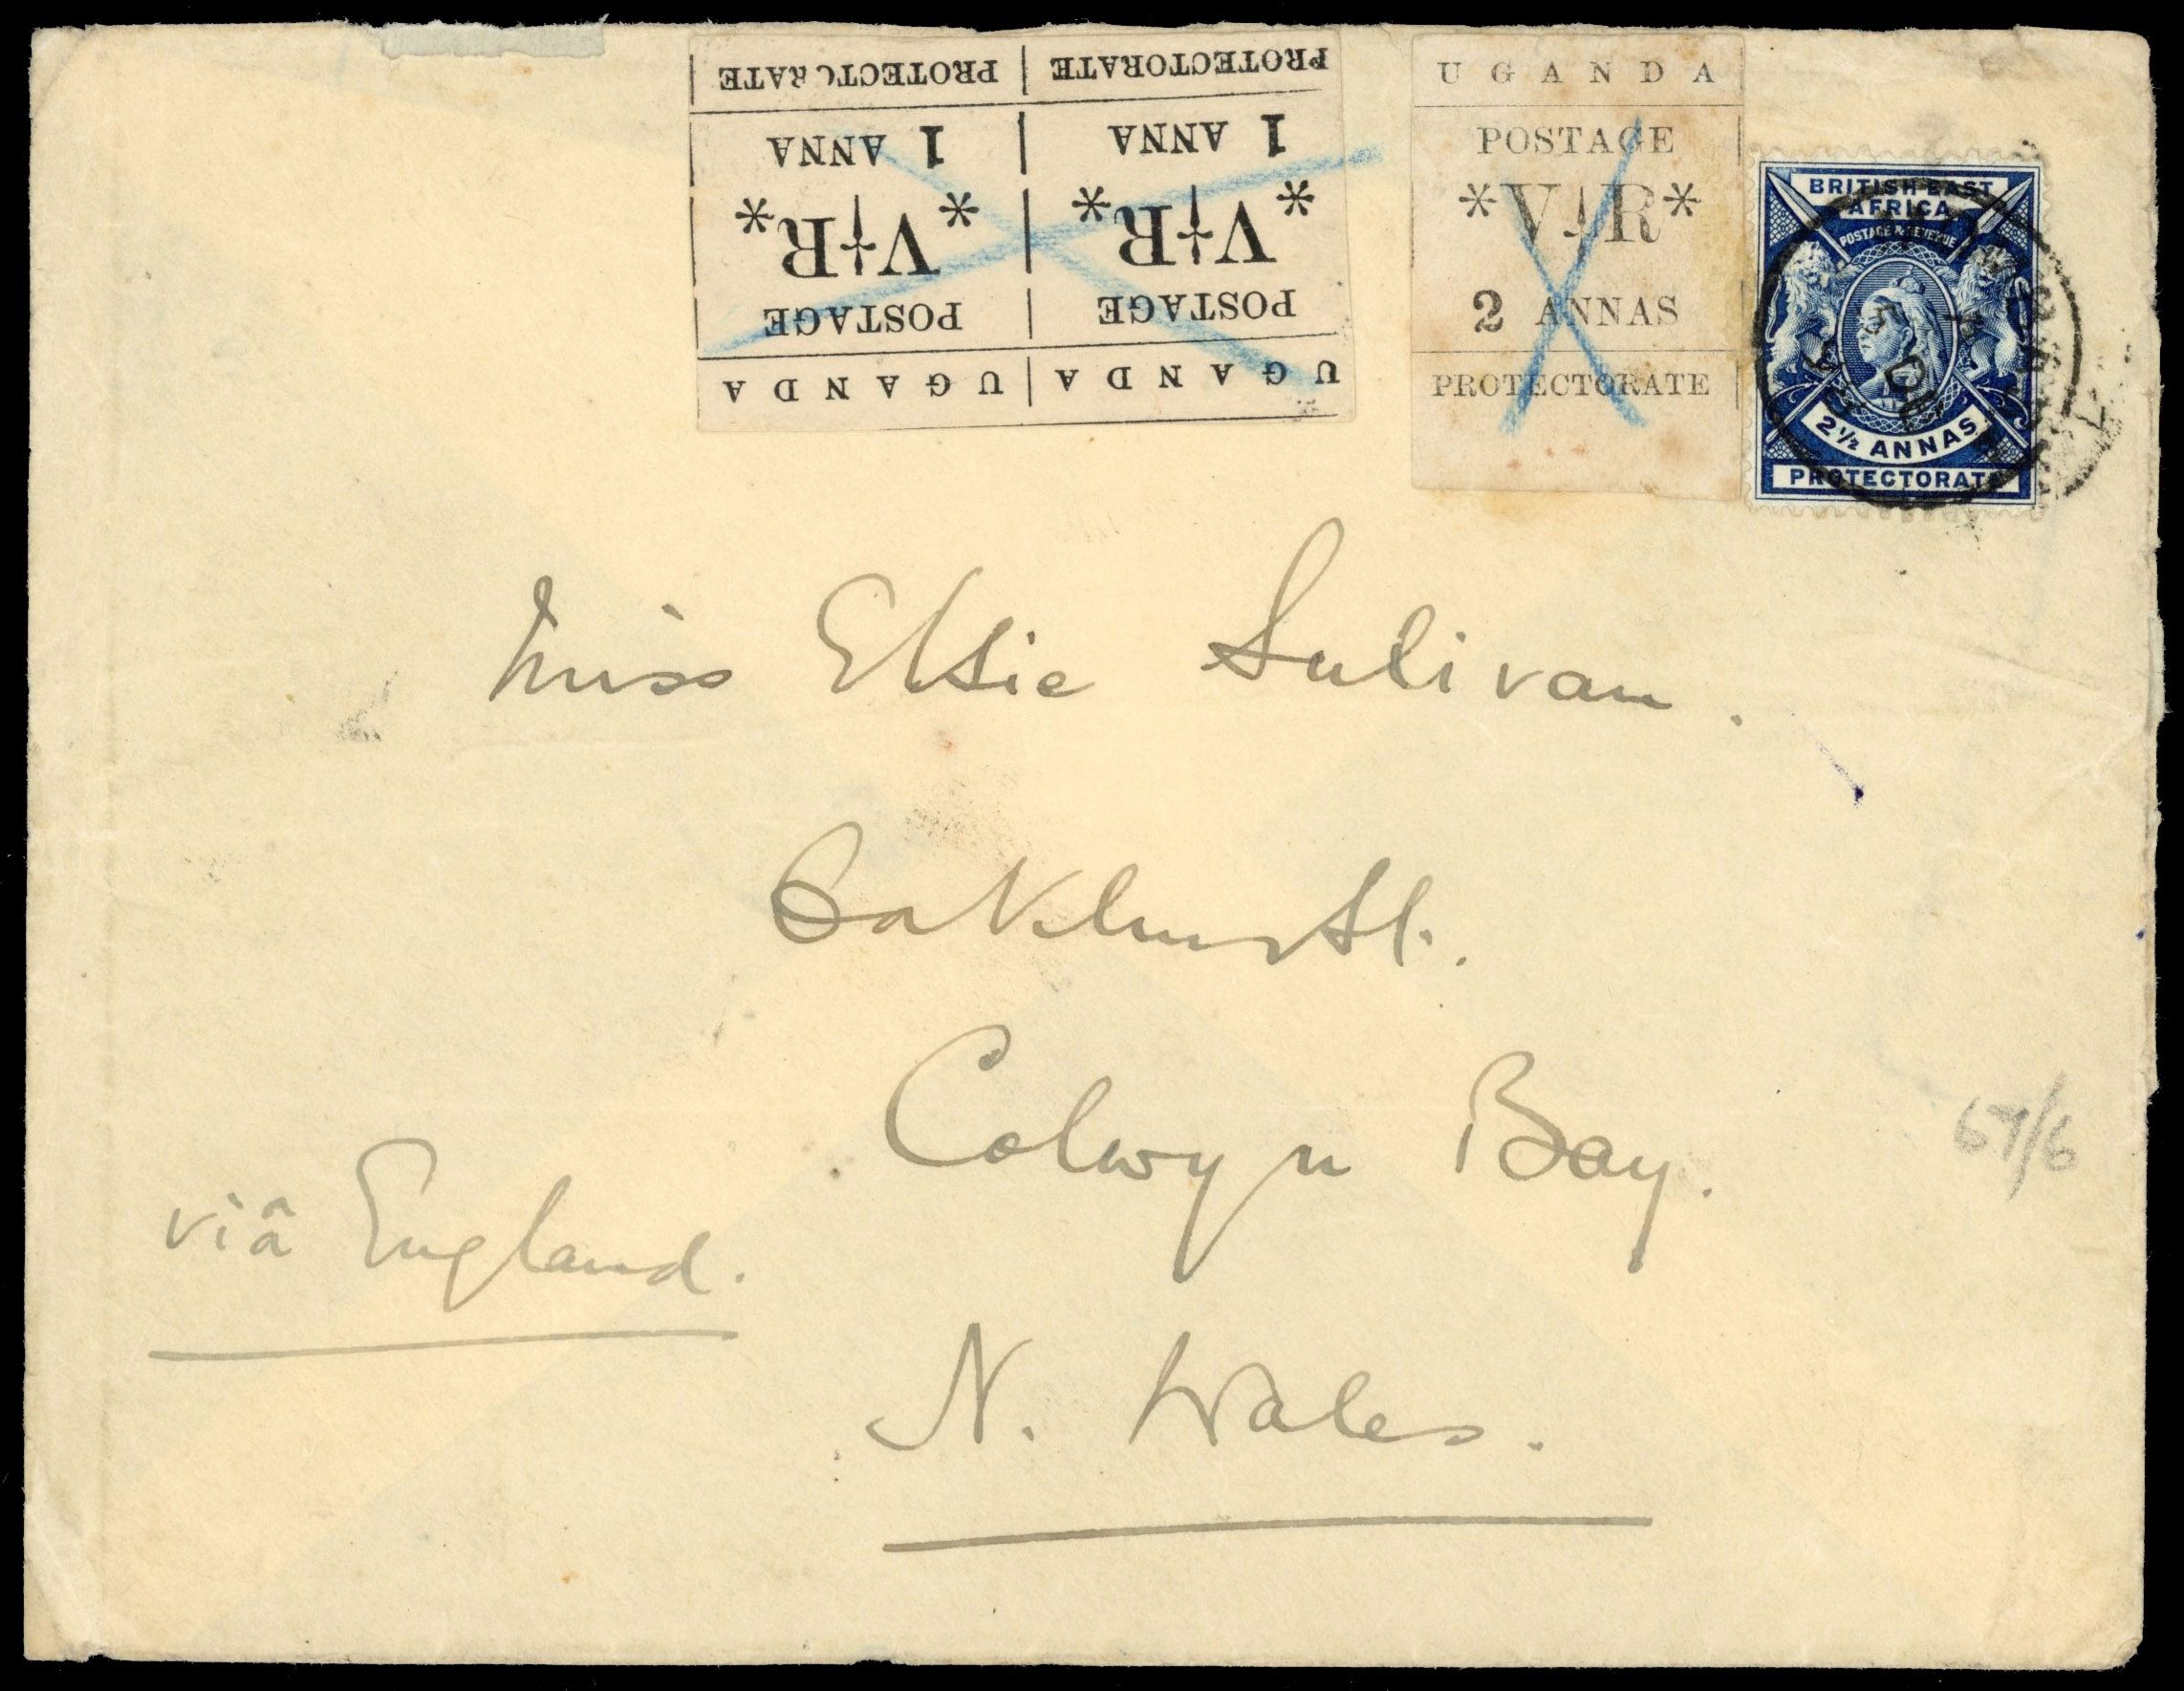 PROTECTORATE PROTECTORATE
1 ANNA 1 ANNA
*V R* *V R*
POSTAGE POSTAGE
UGANDA UGANDA
UGANDA
POSTAGE
*V R*
2 ANNAS
PROTECTORATE
BRITISH EAST
AFRICA
POSTAGE & REVENUE
2½ ANNAS
PROTECTORATE
Miss Elsie Sulivan.
Oakhurst.
Colwyn Bay.
67/6
viâ England.
N. Wales.